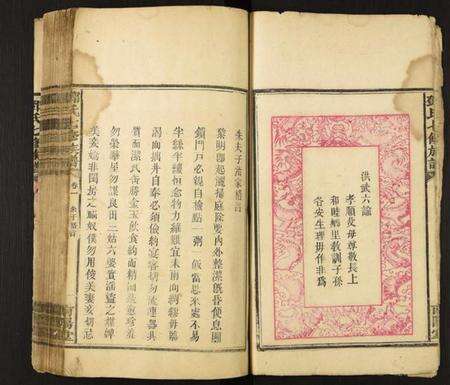 氏七修族譜
洪武六諭
孝順父母尊敬長上
和睦鄉里教訓子孫
各安生理毋作非為
朱夫子治家格言
黎明即起灑掃庭除要內外整潔既昏便息關
鎖門戶必親自檢點一粥一飯當思來處不易
半絲半縷恒念物力維艱宜未雨而綢繆毋臨
渴而掘井自奉必須儉約宴客切勿流連器具
質而潔瓦缶勝金玉飲食約而精園蔬愈珍羞
勿營華屋勿謀良田三姑六婆實淫盜之媒婢
美妾嬌非閨房之福奴僕勿用俊美妻妾切忌
南陽堂